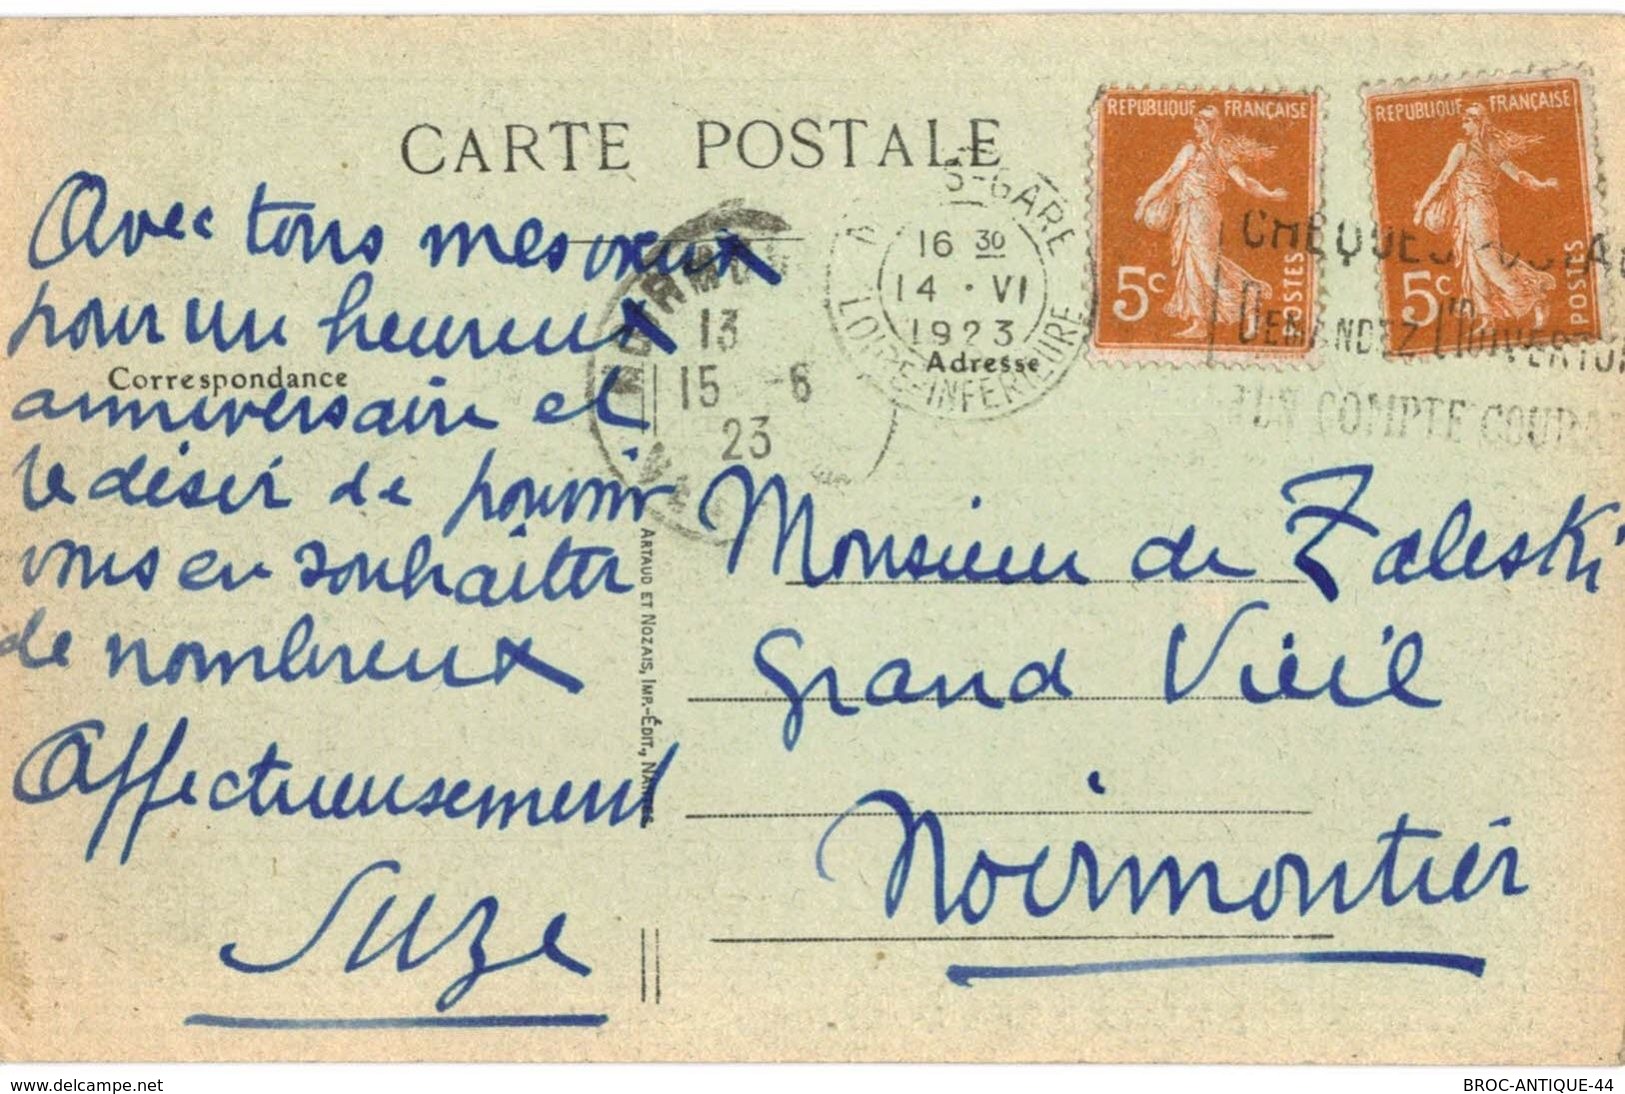 CARTE POSTALE
Correspondance
Avec tous mes vœux
pour un heureux
anniversaire et
le désir de pouvoir
vous en souhaiter
de nombreux
Affectueusement
Suze
ARTAUD ET NOZAIS, IMP.-ÉDIT., NANTES
13
15 -6
23
S-GARE
16 30
14 · VI
1923
LOIRE-INFERIEURE
REPUBLIQUE FRANÇAISE
5c
POSTES
REPUBLIQUE FRANÇAISE
5c
POSTES
CHEQUES POSTA
DEMANDEZ L'OUVERTUR
D'UN COMPTE COURA
Adresse
Monsieur de Zaleski
Grand Vieil
Noirmontier
www.delcampe.net
BROC-ANTIQUE-44